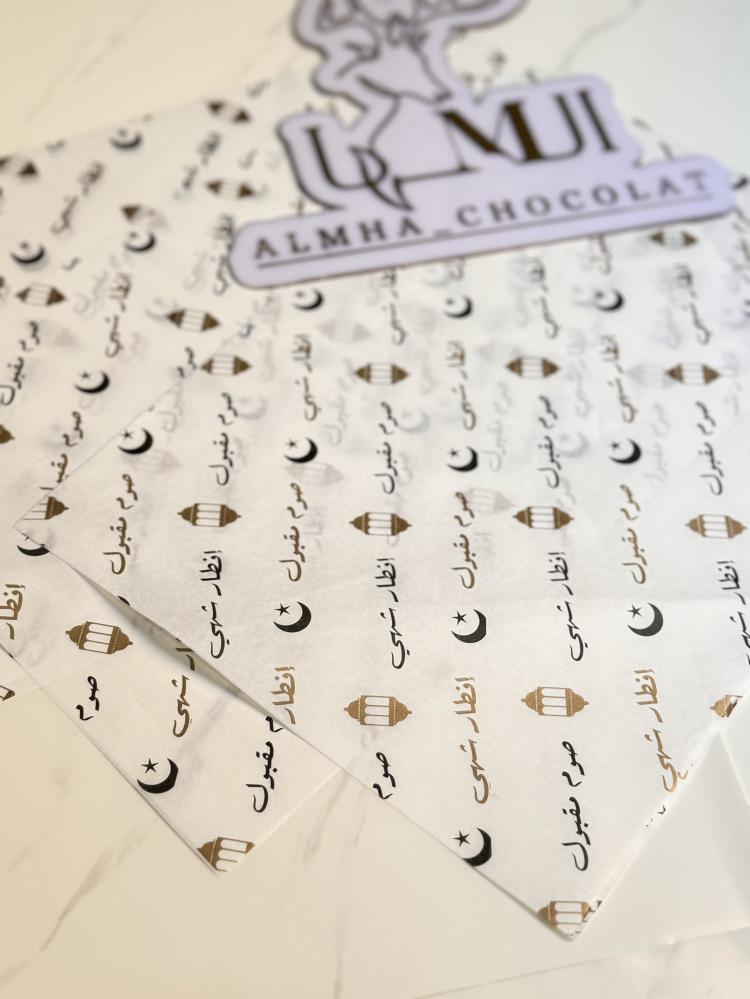 المها
ALMHA_CHOCOLAT
إفطار شهي
صوم مقبول
إفطار شهي
صوم مقبول
إفطار شهي
صوم مقبول
إفطار شهي
صوم مقبول
إفطار شهي
صوم مقبول
إفطار شهي
صوم مقبول
إفطار شهي
صوم مقبول